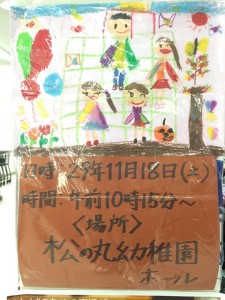 日時:29年11月18日(土)
時間:午前10時15分〜
〈場所〉
松の丸幼稚園
ホール